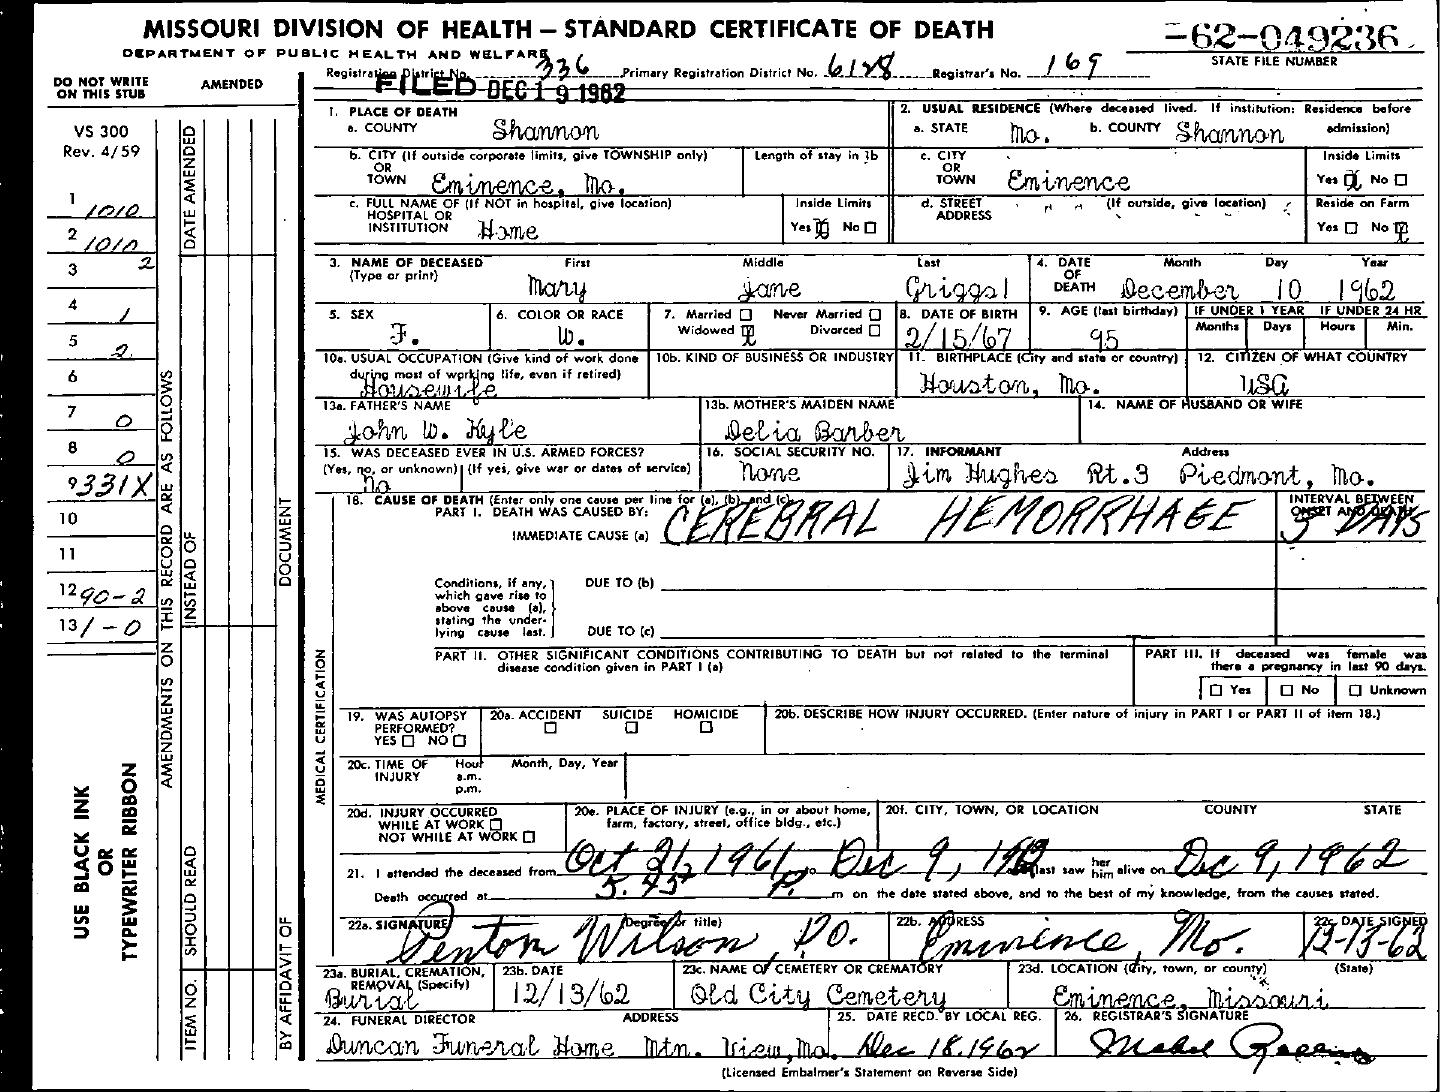 MISSOURI DIVISION OF HEALTH — STANDARD CERTIFICATE OF DEATH
-62-049236
DEPARTMENT OF PUBLIC HEALTH AND WELFARE
STATE FILE NUMBER
Registration District No. 336 Primary Registration District No. 6128 Registrar's No. 169
FILED DEC 19 1962
DO NOT WRITE ON THIS STUB
AMENDED
VS 300
Rev. 4/59
1 1010
2 1010
3 2
4 1
5 2
6
7 0
8 0
9 331X
10
11
12 90-2
13 1-0
USE BLACK INK
OR
TYPEWRITER RIBBON
AMENDMENTS ON THIS RECORD ARE AS FOLLOWS
DATE AMENDED
INSTEAD OF
DOCUMENT
ITEM NO. SHOULD READ
BY AFFIDAVIT OF
1. PLACE OF DEATH
a. COUNTY Shannon
2. USUAL RESIDENCE (Where deceased lived. If institution: Residence before admission)
a. STATE Mo. b. COUNTY Shannon
b. CITY (If outside corporate limits, give TOWNSHIP only)
OR
TOWN Eminence, Mo.
Length of stay in 1b
c. CITY
OR
TOWN Eminence
Inside Limits
Yes X No
c. FULL NAME OF (If NOT in hospital, give location)
HOSPITAL OR
INSTITUTION Home
Inside Limits
Yes X No
d. STREET
ADDRESS
(If outside, give location)
Reside on Farm
Yes No X
3. NAME OF DECEASED
(Type or print)
First Middle Last
Mary Jane Griggsl
4. DATE
OF
DEATH
Month Day Year
December 10 1962
5. SEX
F.
6. COLOR OR RACE
W.
7. Married Never Married
Widowed X Divorced
8. DATE OF BIRTH
2/15/67
9. AGE (last birthday)
95
IF UNDER 1 YEAR IF UNDER 24 HR
Months Days Hours Min.
10a. USUAL OCCUPATION (Give kind of work done
during most of working life, even if retired)
Housewife
10b. KIND OF BUSINESS OR INDUSTRY
11. BIRTHPLACE (City and state or country)
Houston, Mo.
12. CITIZEN OF WHAT COUNTRY
USA
13a. FATHER'S NAME
John W. Kyle
13b. MOTHER'S MAIDEN NAME
Delia Barber
14. NAME OF HUSBAND OR WIFE
15. WAS DECEASED EVER IN U.S. ARMED FORCES?
(Yes, no, or unknown) (If yes, give war or dates of service)
No
16. SOCIAL SECURITY NO.
None
17. INFORMANT Address
Jim Hughes Rt.3 Piedmont, Mo.
MEDICAL CERTIFICATION
18. CAUSE OF DEATH (Enter only one cause per line for (a), (b), and (c).
PART I. DEATH WAS CAUSED BY:
IMMEDIATE CAUSE (a) CEREBRAL HEMORRHAGE
INTERVAL BETWEEN
ONSET AND DEATH
DAYS
Conditions, if any,
which gave rise to
above cause (a),
stating the under-
lying cause last.
DUE TO (b)
DUE TO (c)
PART II. OTHER SIGNIFICANT CONDITIONS CONTRIBUTING TO DEATH but not related to the terminal
disease condition given in PART I (a)
PART III. If deceased was female was
there a pregnancy in last 90 days.
Yes No Unknown
19. WAS AUTOPSY
PERFORMED?
YES NO
20a. ACCIDENT SUICIDE HOMICIDE
20b. DESCRIBE HOW INJURY OCCURRED. (Enter nature of injury in PART I or PART II of item 18.)
20c. TIME OF
INJURY
Hour
a.m.
p.m.
Month, Day, Year
20d. INJURY OCCURRED
WHILE AT WORK
NOT WHILE AT WORK
20e. PLACE OF INJURY (e.g., in or about home,
farm, factory, street, office bldg., etc.)
20f. CITY, TOWN, OR LOCATION COUNTY STATE
21. I attended the deceased from Oct 21, 1961 to Dec 9, 1962 and last saw her him alive on Dec 9, 1962
Death occurred at 5:45 P. m on the date stated above, and to the best of my knowledge, from the causes stated.
22a. SIGNATURE (Degree or title)
Wilson, D.O.
22b. ADDRESS
Eminence, Mo.
22c. DATE SIGNED
12-13-62
23a. BURIAL, CREMATION,
REMOVAL (Specify)
Burial
23b. DATE
12/13/62
23c. NAME OF CEMETERY OR CREMATORY
Old City Cemetery
23d. LOCATION (City, town, or county) (State)
Eminence, Missouri
24. FUNERAL DIRECTOR ADDRESS
Duncan Funeral Home Mtn. View, Mo.
25. DATE RECD. BY LOCAL REG.
Dec 18, 1962
26. REGISTRAR'S SIGNATURE
Mabel
(Licensed Embalmer's Statement on Reverse Side)